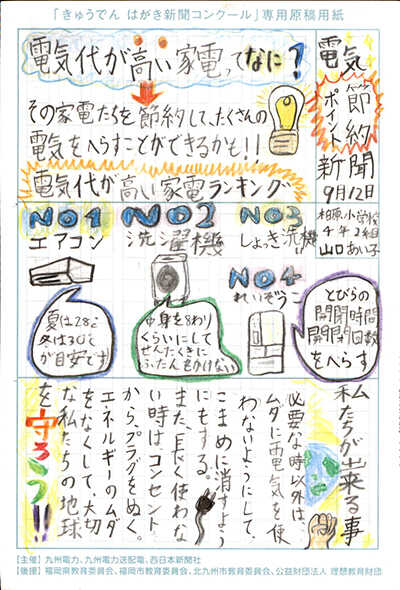 「きゅうでん はがき新聞コンクール」専用原稿用紙
電気
節約
ポイント
新聞
9月12日
柏原小学校
4年2組
山口あい子
電気代が高い家電ってなに？
その家電たちを節約して、たくさんの
電気をへらすことができるかも！！
電気代が高い家電ランキング
NO1
エアコン
夏は28℃
冬は30℃
が目安です
NO2
洗濯機
中身を8わり
くらいにして
せんたくきに
ふたんをかけない
NO3
しょっき洗機
NO4
れいぞうこ
とびらの
開閉時間
開閉回数
をへらす
私たちが出来る事
必要な時以外は、
ムダに電気を使
わないようにして、
こまめに消すよう
にもする。
また、長く使わな
い時は、コンセント
から、プラグをぬく。
エネルギーのムダ
をなくして、大切
な私たちの地球
を守ろう!!
【主催】九州電力、九州電力送配電、西日本新聞社
【後援】福岡県教育委員会、福岡市教育委員会、北九州市教育委員会、公益財団法人 理想教育財団